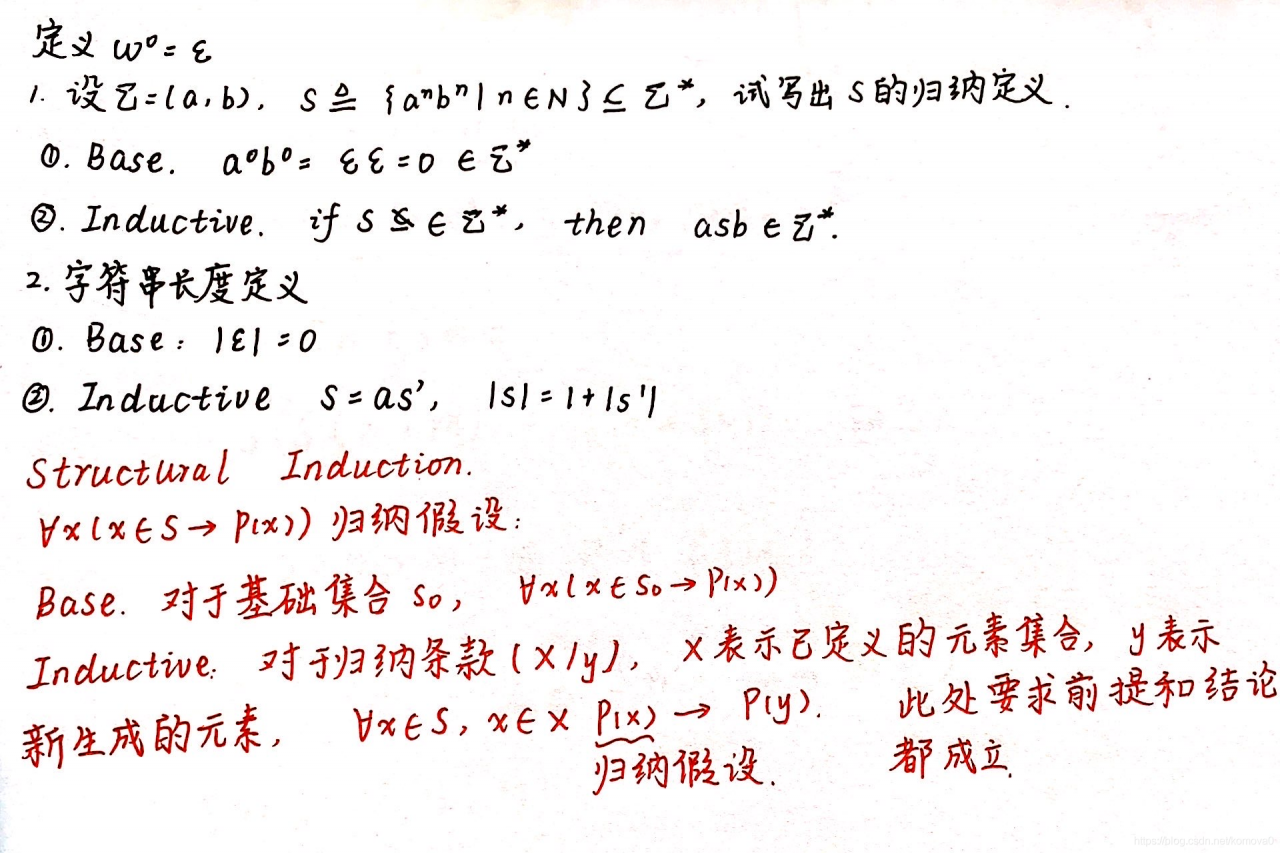 定义 w⁰ = ε
1. 设Σ=(a,b), S ≜ {aⁿbⁿ|n∈N}⊆Σ*, 试写出S的归纳定义.
①. Base. a⁰b⁰= εε=0 ∈Σ*
②. Inductive. if S ∈Σ*, then asb∈Σ*.
2. 字符串长度定义
①. Base: |ε|=0
②. Inductive S=as', |s|=1+|s'|
Structural Induction.
∀x(x∈S→P(x))归纳假设:
Base. 对于基础集合S₀, ∀x(x∈S₀→P(x))
Inductive: 对于归纳条款(X/y), X表示已定义的元素集合, y表示
新生成的元素, ∀x∈S, x∈X P(x)→P(y). 此处要求前提和结论
归纳假设. 都成立.